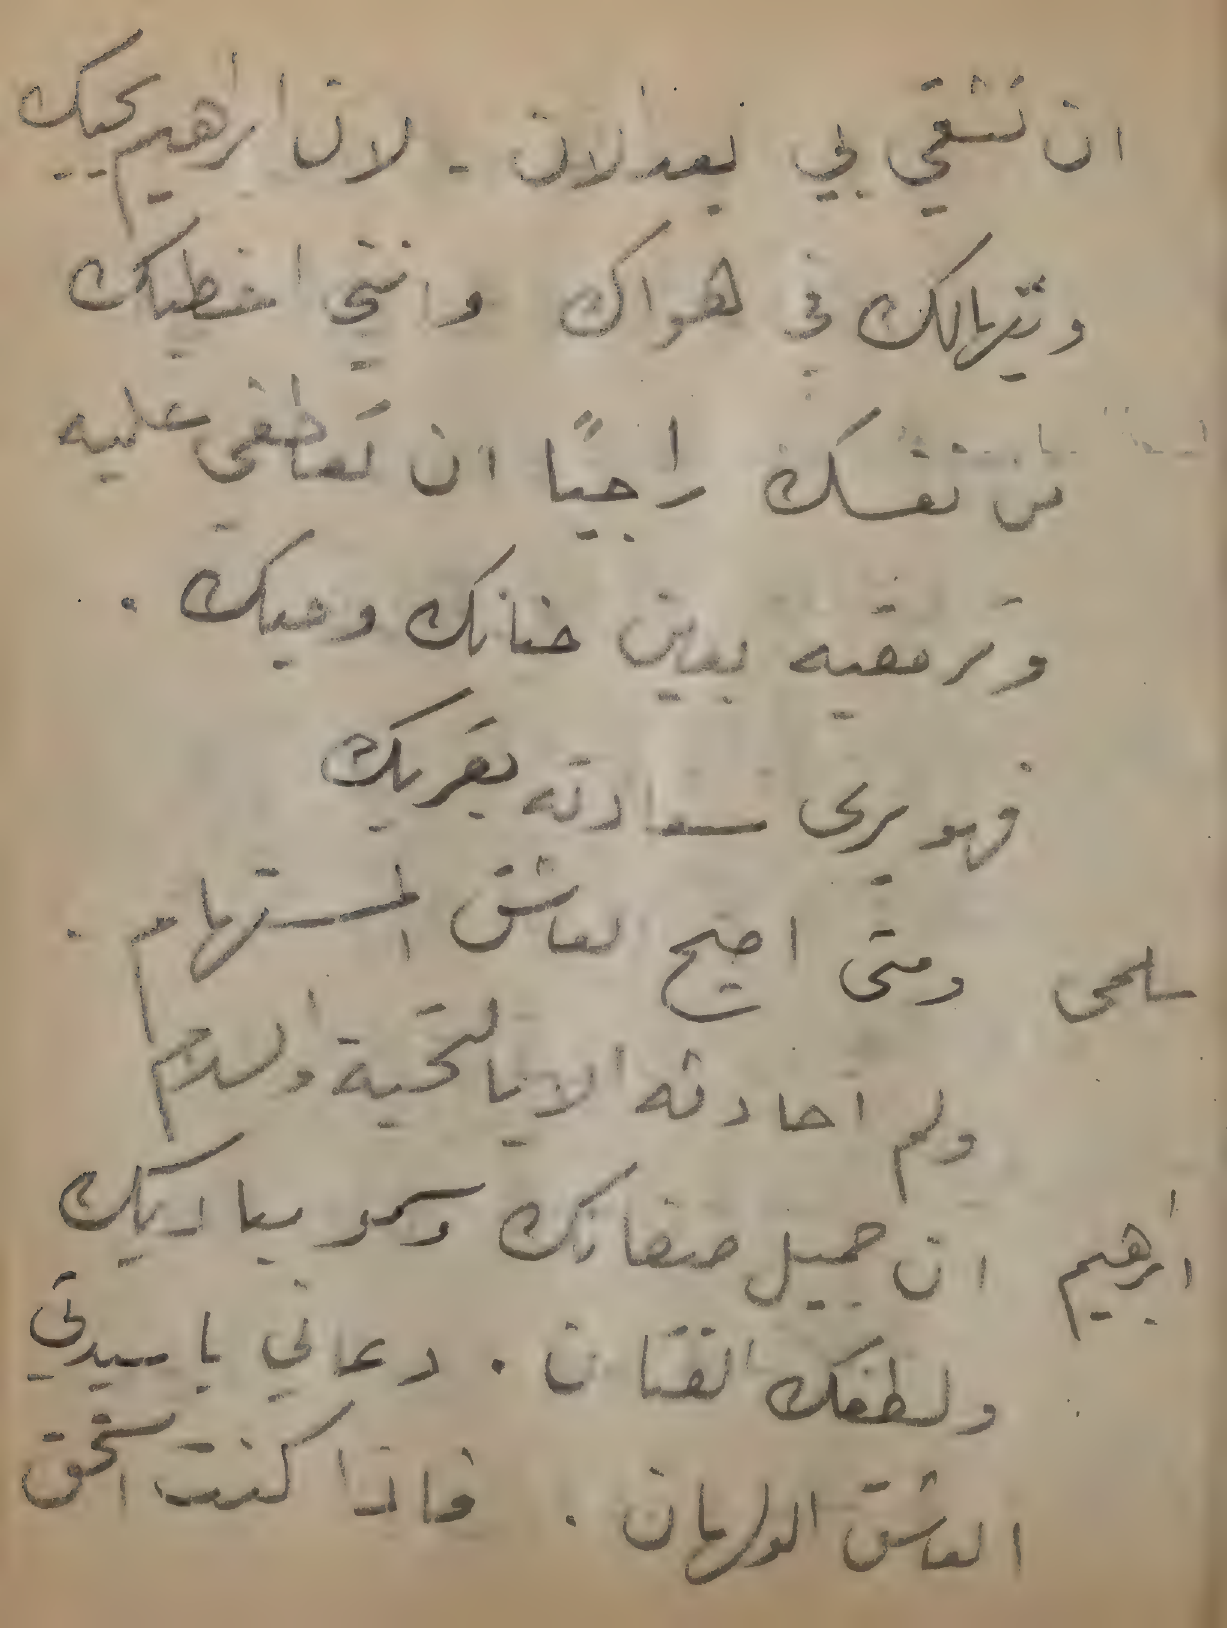 ان تثقي بي بعدلان - لان ابرهيم يحبك
ويتهالك في هواك وانتي اخطبك
من نفسك راجيًا ان تعاطفي عليه
وترمقيه بعين حنانك وحبك .
فهو يرى سعادته بقربك
سلمى ومتى اصبح لعاشق المستهام .
ولم احادثه الا بالتحية والسلام
ابرهيم ان جميل صفاتك وسمو مباديك
ولطفك الفتان . دعاني يا سيدتي
العاشق الولهان . فاذا كنت استحق